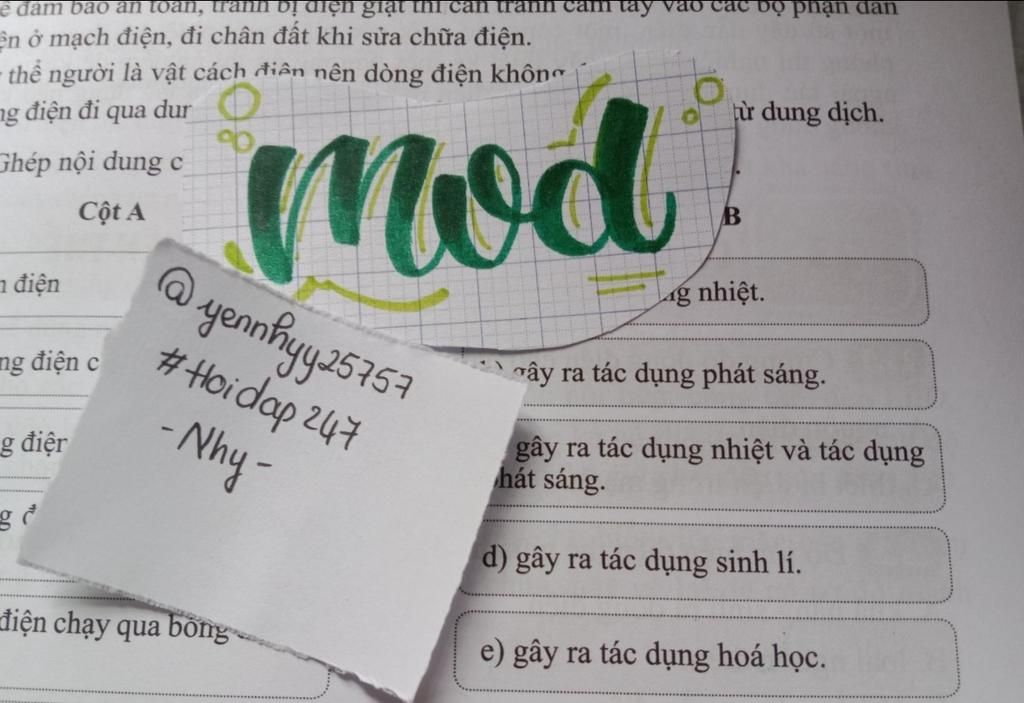 ể đảm bảo an toàn, tránh bị điện giật thì cần tránh cắm tay vào các bộ phận dẫn
ện ở mạch điện, đi chân đất khi sửa chữa điện.
thể người là vật cách điện nên dòng điện không
ng điện đi qua dun từ dung dịch.
Ghép nội dung c
Cột A
B
mod
n điện
ng nhiệt.
@yennhyy25757
#Hoidap247
-Nhy-
ng điện c
gây ra tác dụng phát sáng.
g điện
gây ra tác dụng nhiệt và tác dụng
phát sáng.
g đ
d) gây ra tác dụng sinh lí.
điện chạy qua bóng
e) gây ra tác dụng hoá học.